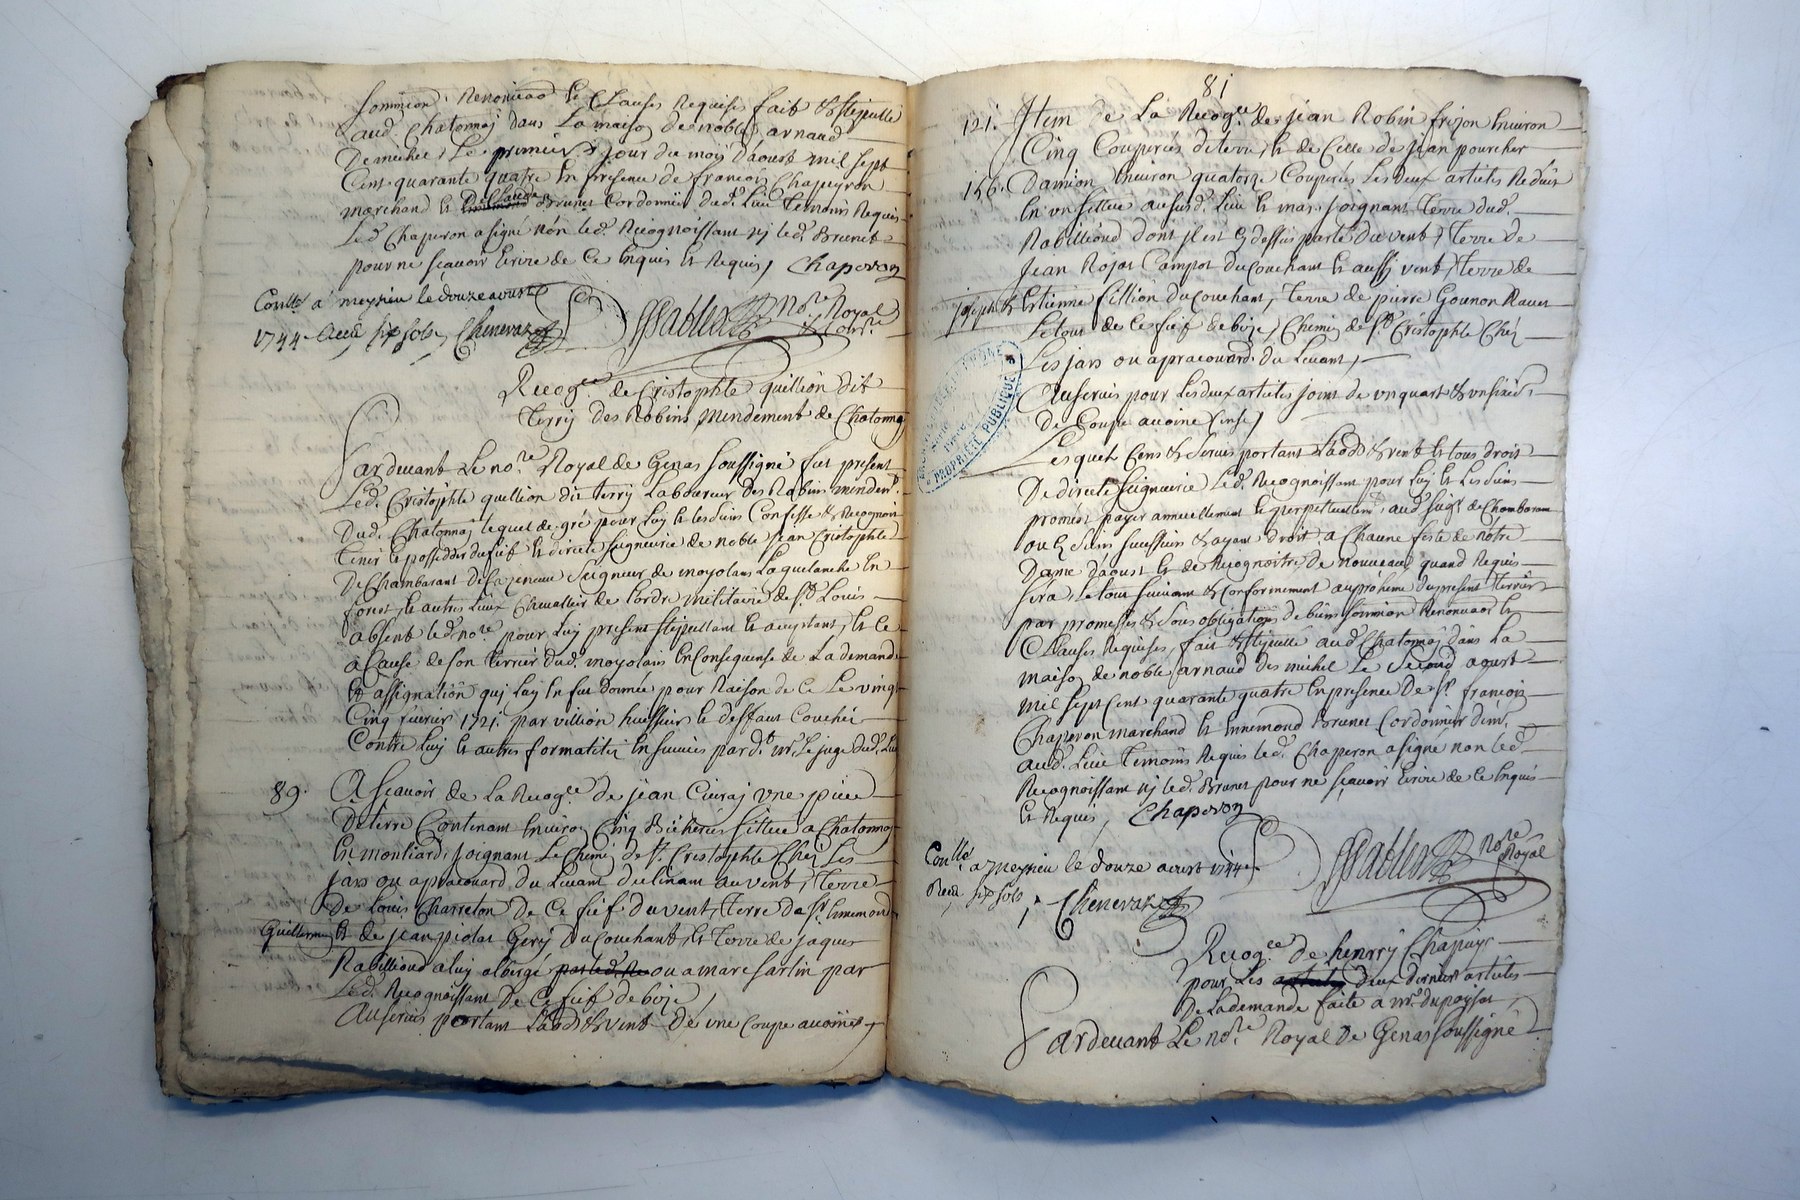 soumission, Renonciaõ & Clauses Requises fait & stipullé
aud. Chatonnaj dans La maison de noble arnaud
Demichel, Le premier jour du moy d'aoust mil sept
Cent quarante quatre En presence de françois Chaperon
marchand & Brunet Cordonnier dud. Lieu Temoins Requis
Led. Chaperon a signé nõn led. Recognoissant nj led. Brunet
pour ne scavoir Ecrire de Ce Enquis & Requis, Chaperon
Conllé a meyzieu le douze aoust
1744 Recu six sols, Chenevaz
no.re Royal
Recog.ce de Cristophle quillion dit
Terry des Robins Mendement de Chatonnaj
Pardevant Le no.re Royal de Genas soussigné fut present
Led. Cristophle quillion dit terry Laboureur des Robins mendem.t
Dud. Chatonnaj lequel de gré pour Luy & les siens Confesse & Recognoit
tenir & posseder du fief & directe seigneurie de noble jean Cristophle
De Chambarant Seigneur de moyolans La En
forest & autres Lieux Chevallier de l'ordre militaire de S.t Louis
absent led. no.re pour Luy present stipullant & aceptant, & Ce
a Cause de son terrier dud. moyolans En Consequense de La demande
& assignatiõn quj Luy En fut donnée pour Raison de Ce Le vingt
Cinq fevrier 1721. par villion huissier & deffaut Couchéz
Contre Luy & autres formalitéz Ensuivies pard.t mr. Le juge dud. Lieu
89. A scavoir de La Recog.ce de jean Cieraj vne piece
De terre Contenant Environ Cinq Bicherées sittuée a Chatonnaj
En montliard, joignant Le Chemin de S.t Cristophle Chéz Les
jars ou apracouard du Levant au vent, Terre
de Louis Charreton de Ce fief du vent, terre de S.r Ennemond
Guillermin & de jean piolat Gerij du Couchant, & Terre de jaques
Rabillioud a luy albergé par led. Re ou a marc sarlin par
Led. Recognoissant De Ce fief de bize,
Au servis portant Laods & vent De vne Coupe avoine,
81
121. Item de La Recog.ce de jean Robin frizon Environ
Cinq Couperées de terre, & de Celle de jean pourcher
156. Damion Environ quatorze Couperées Les deux articles Reduit
En vn sittué au susd. Lieu & mas, joignant Terre dud.
Rabillioud dont jl est cy dessus parlé du vent, Terre de
jean Rojat Campot du Couchant & aussj vent, Terre de
joseph & Estienne fillion du Couchant, Terre de pierre Gounon Ravet
Le tout des Ce fief de bize, Chemin de S.t Cristophle Chéz
Les jars ou apracouard du Levant,
Au servis pour Les deux articles joint de vn quart & vn sizie.
De Coupe avoine Cense,
Lesquels Cens & Servis portant Laods & vent & tous droit
De directe seigneurie Led. Recognoissant pour Luy & Les siens
promèt payer annuellement & perpetuellem.t aud. seig.r de Chambaran
ou es siens successeurs & ayant droit, a Chacune feste de nòtre
Dame d'aoust & de Recognoitre De nouveau quand Requis
sera, Le tout suivant & Conformement au prohème du present Terrier
par promesses & sous obligatiõn de biens soumission Renonciaõ &
Clauses Requises, fait & stipullé aud. Chatonnaj dans La
maison de noble arnaud des michel Le second aoust
mil sept Cent quarante quatre En presence De S.r françois
Chaperon marchand & Ennemond Brunet Cordonnier
aud. Lieu Temoins Requis led. Chaperon a signé non led.
Recognoissant nj led. Brunet pour ne sçavoir Ecrire de Ce Enquis
& Requis, Chaperon
Conllé a Meyzieu le douze aoust 1744
Recu six sols, Chenevaz
no.re Royal
PROPRIÉTÉ PUBLIQUE
Recog.ce de henrry Chapuys
pour Les articles deux derniers articles
De La demande faite a mr. dupoysat,
Pardevant Le no.re Royal De Genas soussigné